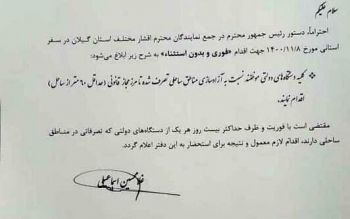 سلام علیکم
احتراماً، دستور رئیس جمهور محترم در جمع نمایندگان محترم اقشار مختلف استان گیلان در سفر
استانی مورخ ۱۴۰۰/۱۱/۸ جهت اقدام «فوری و بدون استثناء» به شرح زیر ابلاغ می‌شود:
کلیه دستگاه‌های دولتی موظفند نسبت به آزادسازی مناطق ساحلی تصرف شده تا مرز مجاز قانونی (حداقل ۶۰ متر از ساحل)
اقدام نمایند.
مقتضی است با فوریت و ظرف حداکثر بیست روز هر یک از دستگاه‌های دولتی که تصرفاتی در مناطق
ساحلی دارند، اقدام لازم معمول و نتیجه برای استحضار به این دفتر اعلام گردد.
غلامحسین اسماعیلی